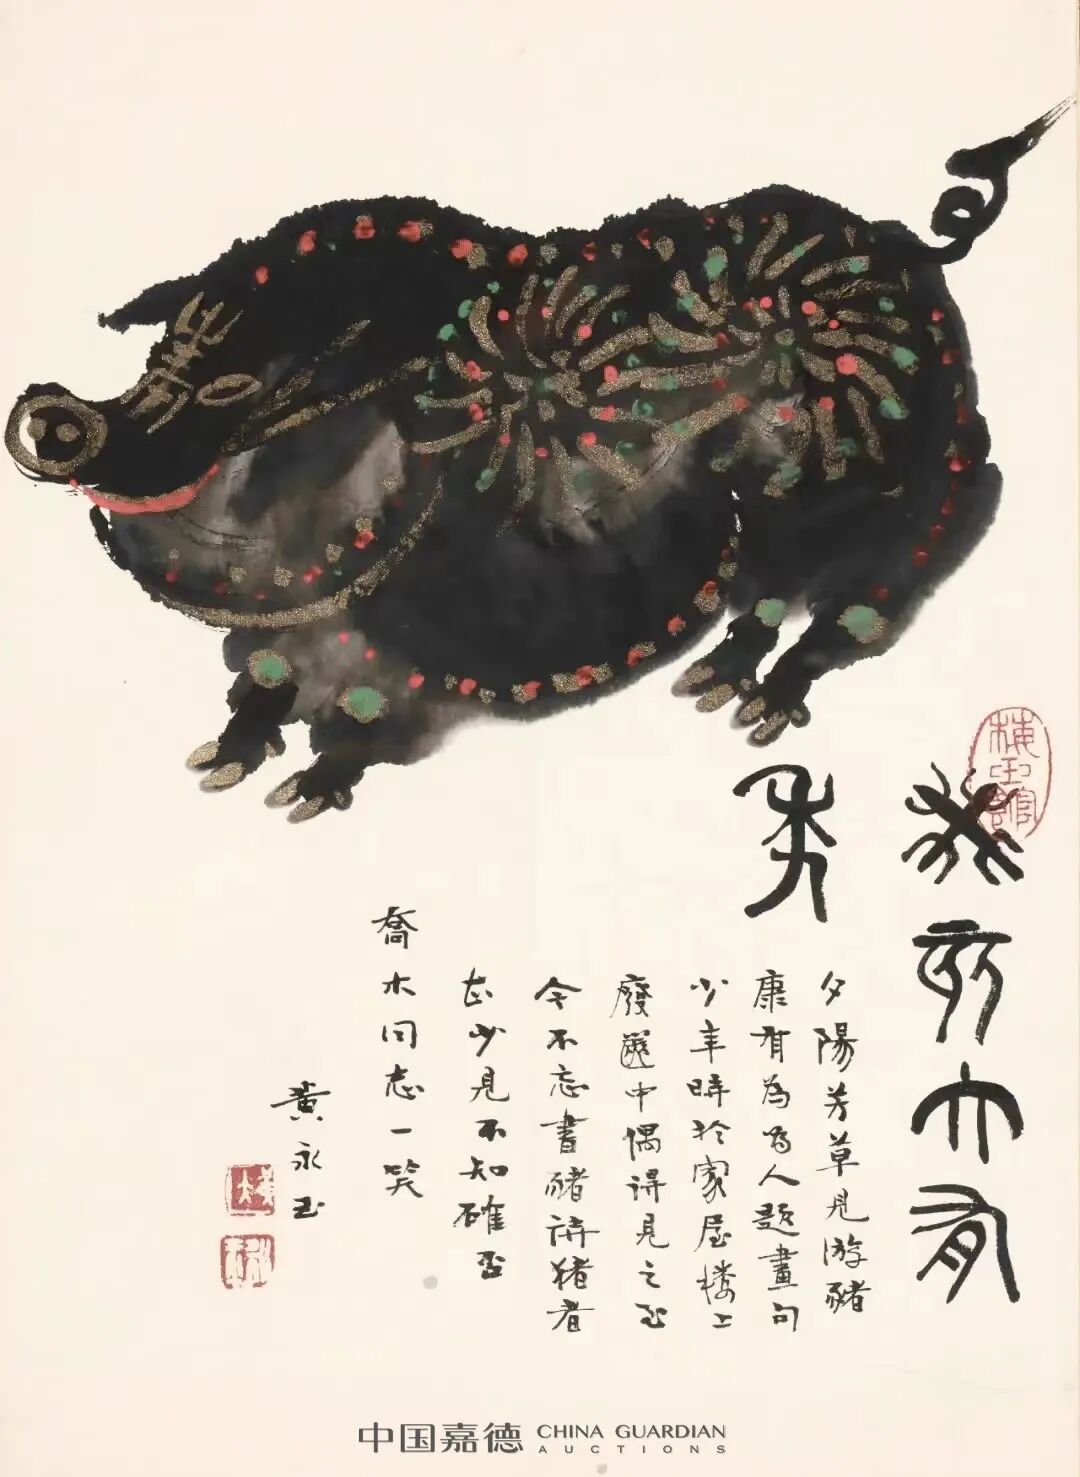 癸亥大有
年
夕陽芳草見游豬
康有為為人題畫句
少年時於家屋樓上
廢中偶得見之至
今不忘書豬猪者
甚少見不知確否
喬木同志一笑
黄永玉
中国嘉德 CHINA GUARDIAN
AUCTIONS